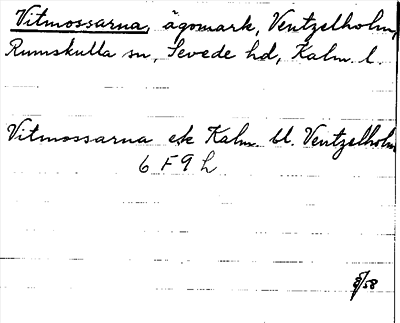 Vitmossarna, ägomark, Ventzelholm,
Rumskulla sn, Sevede hd, Kalm. l.
Vitmossarna ek Kalm. bl. Ventzelholm
6 F 9 h
8/58